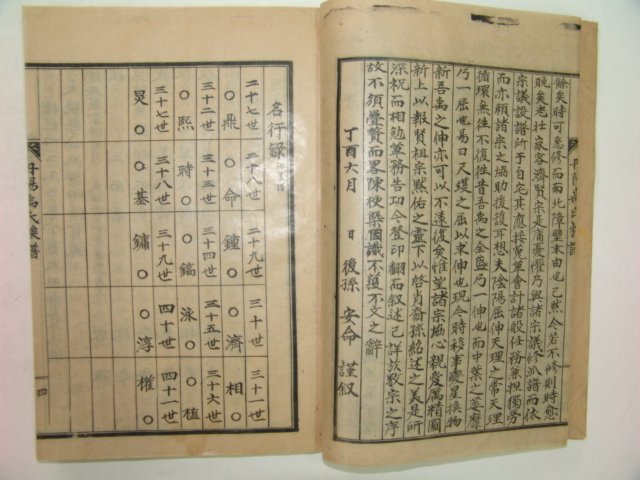 餘矣時可急修而南北障壁末由也已然今若不修則時愈
晩矣老壯ᅟ家容濟賢宗是庸憂懼乃與諸宗議修派譜而依
宗議設譜所于自宅其應接蒐單會計諸般任務兼担獨勞
而亦賴諸宗之協助後諼耳想夫陰陽屈伸天理之常天理
循環無往不復往昔吾禹之金盛乃一伸也而中葉之萎靡
乃一屈也易曰尺蠖之屈以求伸也現今時移事變星換物
新吾禹之伸亦可以不遠復矣惟望諸宗協心親愛属精圖
新上以報賢祖宗黙佑之靈下以啓肖裔孫紹述之美是所
深祝而相勉單務告功令登印翻而叙述已詳於敎宗之序
故不須疊贅而畧陳梗槩因識不獲不文之辭
丁酉六月 日 後孫 安命 謹叙
丹陽禹氏族譜
名行錄
二十七世 二十八世 二十九世 三十世 三十一世
○鼎 ○命 鍾○ ○濟 相○
三十二世 三十三世 三十四世 三十五世 三十六世
○熙 時○ ○鎬 泳○ ○植
三十七世 三十八世 三十九世 四十世 四十一世
炅○ ○基 鏞○ ○淳 權○
丹陽禹氏族譜
四